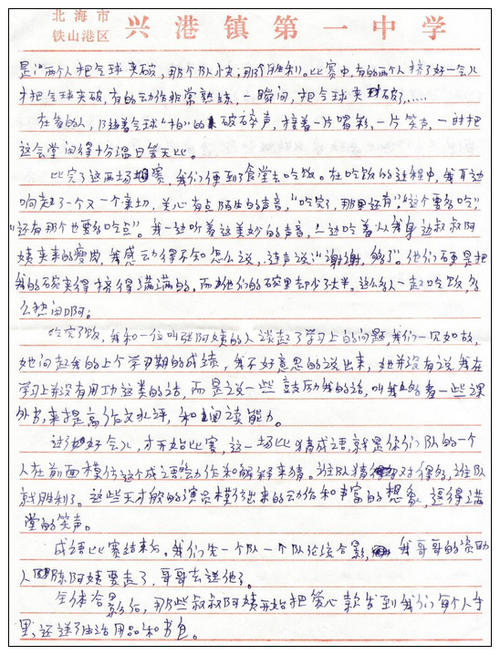 北海市
铁山港区
兴港镇第一中学
是:"两个人把气球夹破,那个队小夹,那个胜利。比赛中,有的两个人挤了好一会儿
才把气球夹破,有的动作非常熟练,一瞬间,把气球夹破了……
在看的人,随着气球"拍"的破碎声,接着一片喝彩,一片笑声,一时把
这会堂闹得十分温日笑无比。
比完了这两场赛,我们便到了食堂去吃饭。在吃饭的过程中,我耳边
响起了一个又一个亲切,关心有点陌生的声音,"吃完了,那里还有""这个要多吃,"
"还有那个也要多吃点"。我一边听着这美妙的声音,一边吃着从我身边叔叔阿
姨夹来的瘦肉,我感动得不知怎么说,连声说:"谢谢,够了"。他们不要是把
我的碗夹得挤得满满的。而他们的碗里却少了大半。这么多人一起吃饭,多
么热闹啊。
吃完了饭,我和一位叫张阿姨的人谈起了学习上的问题,我们一见如故,
她问起我的上个学习期的成绩,我不好意思的说出来,她并没有说我在
学习上并没有用功这类的话,而是说一些鼓励我的话,叫我多看一些课
外书,来提高作文水评,和阅读能力。
过了好会儿,才开始比赛,这一场比猜成语,就是你们队的一个
人在前面模仿这个成语动作和解释来猜。谁队猜对得多,谁队
就胜利了。这些天才般的演员模仿出来的动作和丰富的想象,逗得满
堂的笑声。
成语比赛结束后,我们先一个队一个队论综合影,我哥哥的资助
人陈阿姨要走了,哥哥去送他了。
全体合影后,那些叔叔阿姨开始把爱心款发到我们每个人手
里,还送了生活用品和书包。